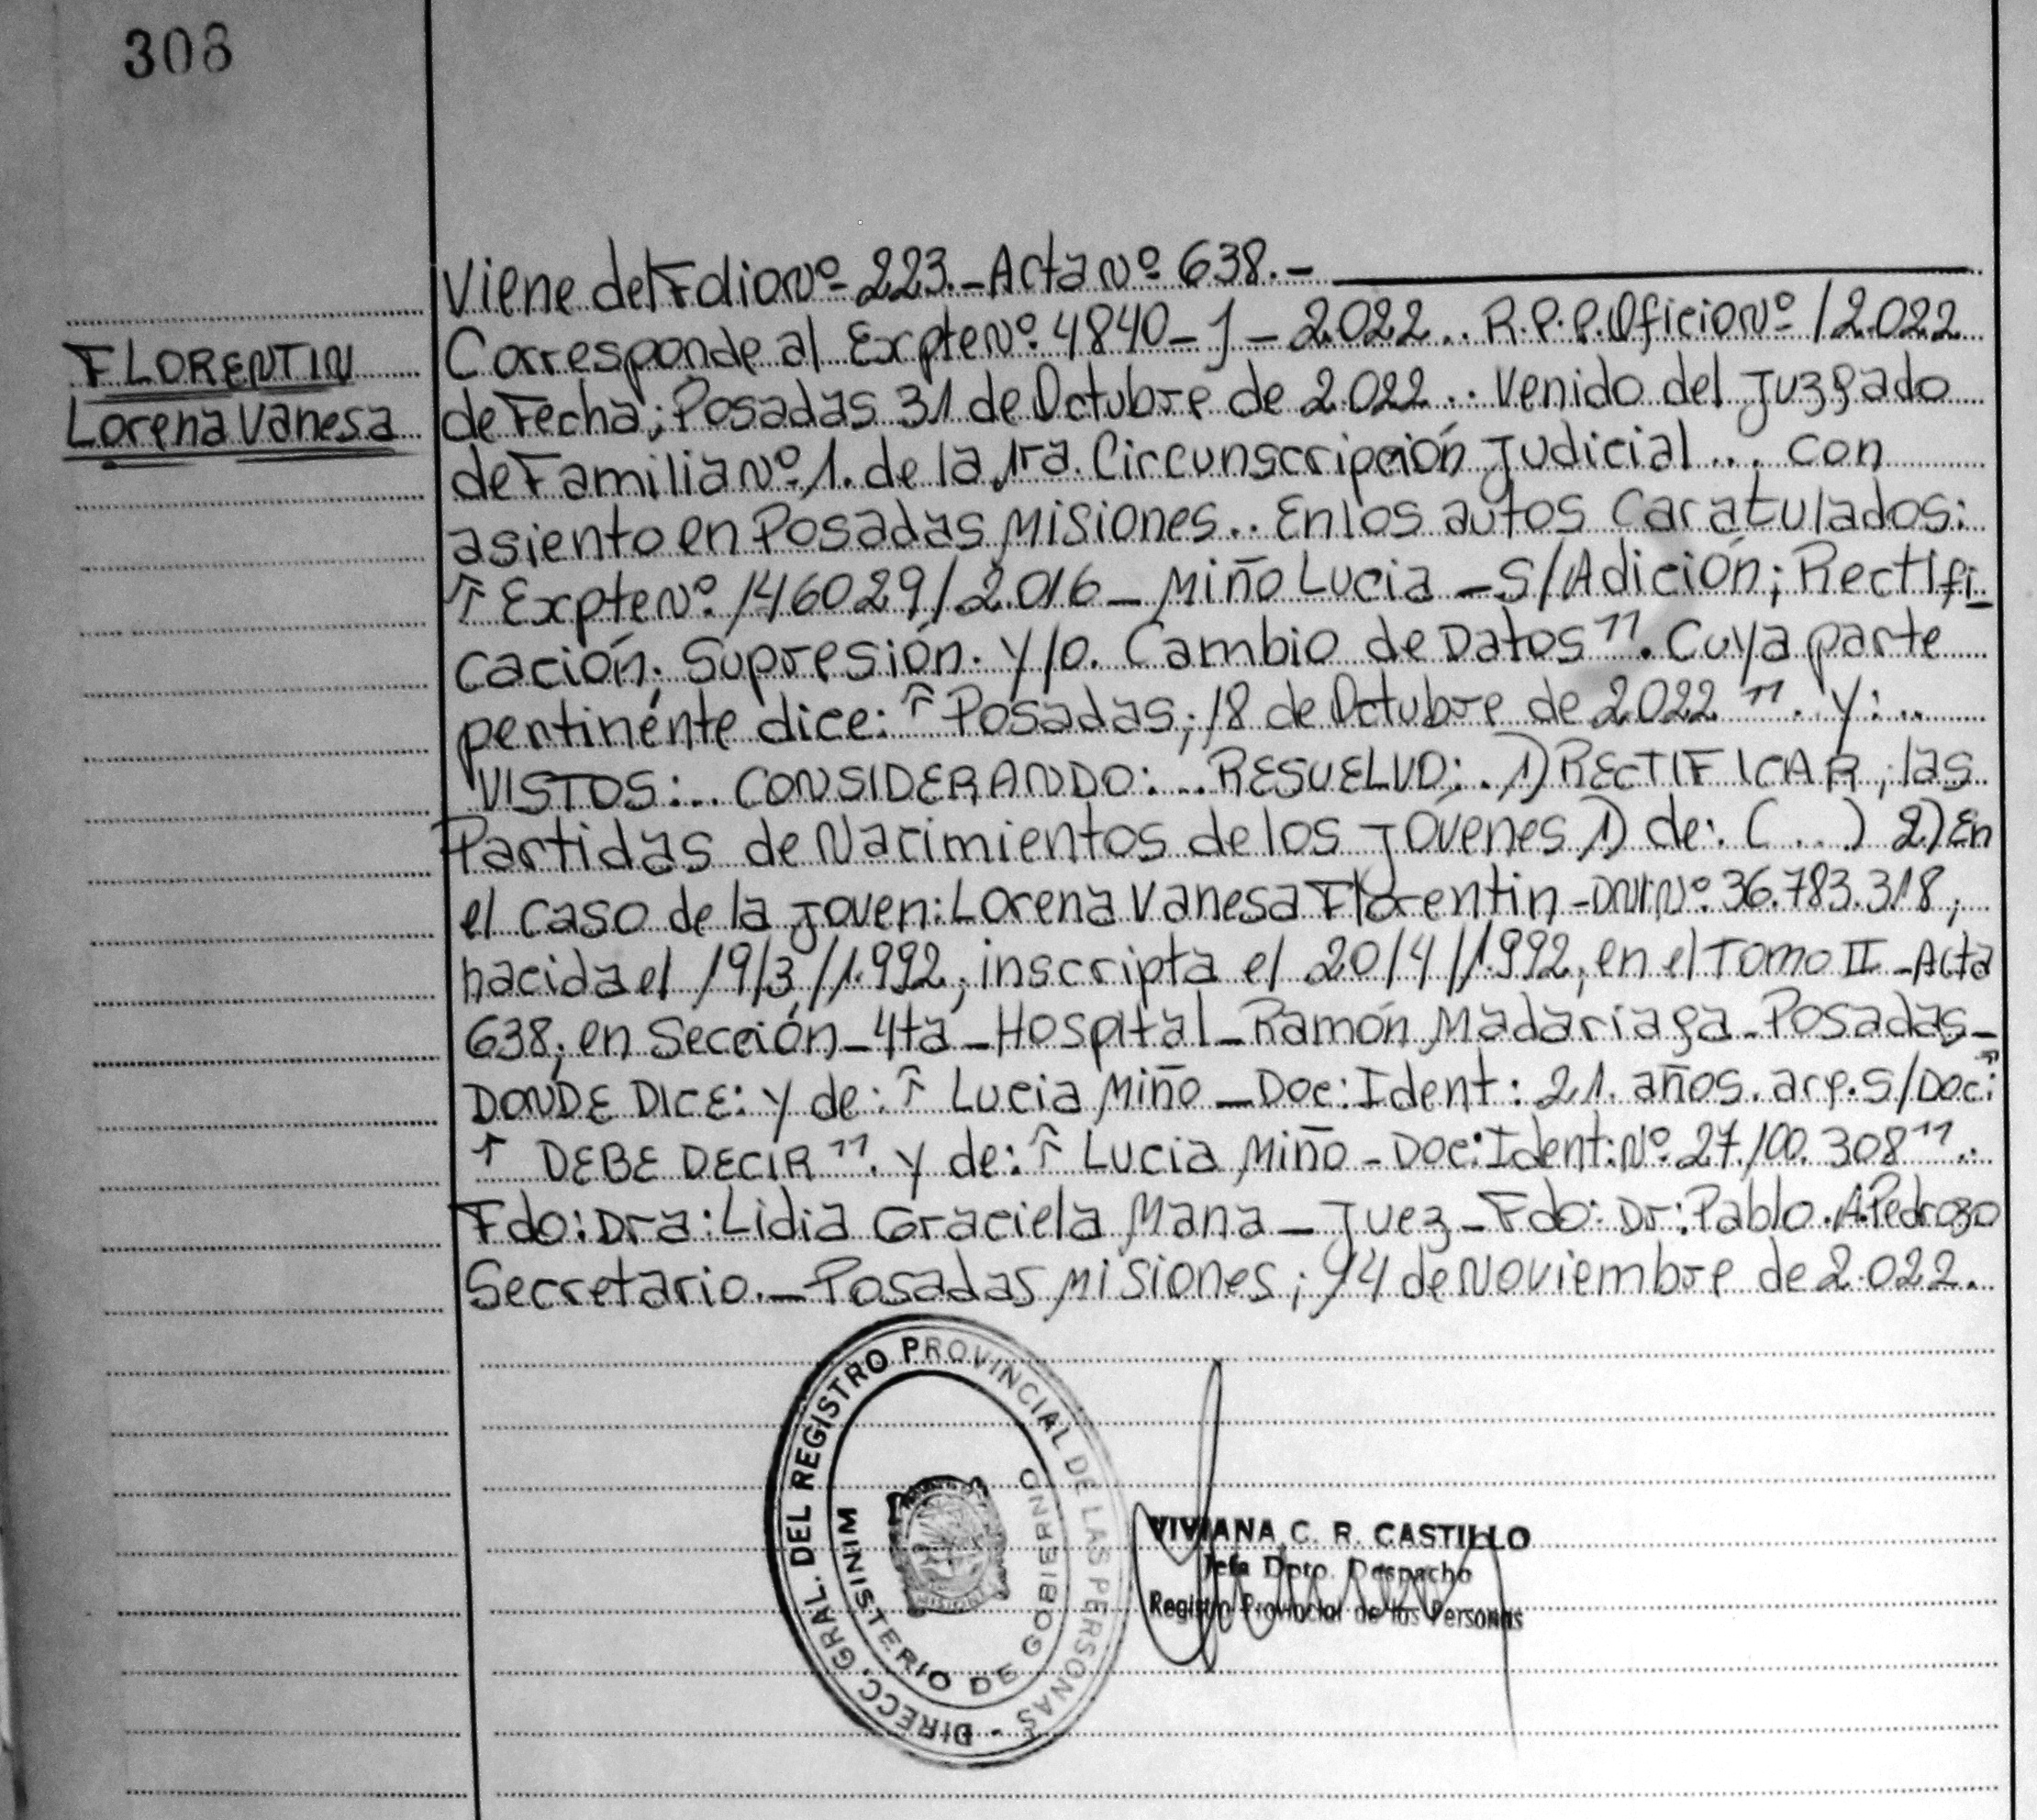 308
Viene del Folio Nº 223.- Acta Nº 638.-
Corresponde al Expte Nº 4840-J-2022.. R.P.P. Oficio Nº /2022
FLORENTIN
Lorena Vanesa
de Fecha; Posadas 31 de Octubre de 2022.. Venido del Juzgado
de Familia Nº 1. de la 1ra. Circunscripción Judicial... con
asiento en Posadas Misiones.. En los autos caratulados:
" Expte Nº 146029/2016 - Miño Lucia - S/Adición; Rectifi-
cación; Supresión. y/o. Cambio de Datos". Cuya parte
pertinénte dice: " Posadas; 18 de Octubre de 2022 ". Y:..
VISTOS:.. CONSIDERANDO:.. RESUELVO:. 1) RECTIFICAR, las
Partidas de Nacimientos de los Jóvenes 1) de: (...) 2) En
el caso de la Joven: Lorena Vanesa Florentin - DNI Nº 36.783.318,
nacida el 19/3/1.992, inscripta el 20/4/1.992, en el Tomo II - Acta
638; en Sección - 4ta - Hospital - Ramón Madariaga - Posadas -
DONDE DICE: y de: " Lucia Miño - Doc: Ident: 21. años. arg. S/Doc: "
" DEBE DECIR ". y de: " Lucia Miño - Doc: Ident: Nº 27.100.308"..
Fdo: Dra: Lidia Graciela Mana - Juez - Fdo: Dr: Pablo. A. Pedrozo
Secretario. - Posadas Misiones; 14 de Noviembre de 2.022.
DIRECC. GRAL. DEL REGISTRO PROVINCIAL DE LAS PERSONAS -
MINISTERIO DE GOBIERNO
VIVIANA C. R. CASTILLO
Jefa Dpto. Despacho
Registro Provincial de las Personas